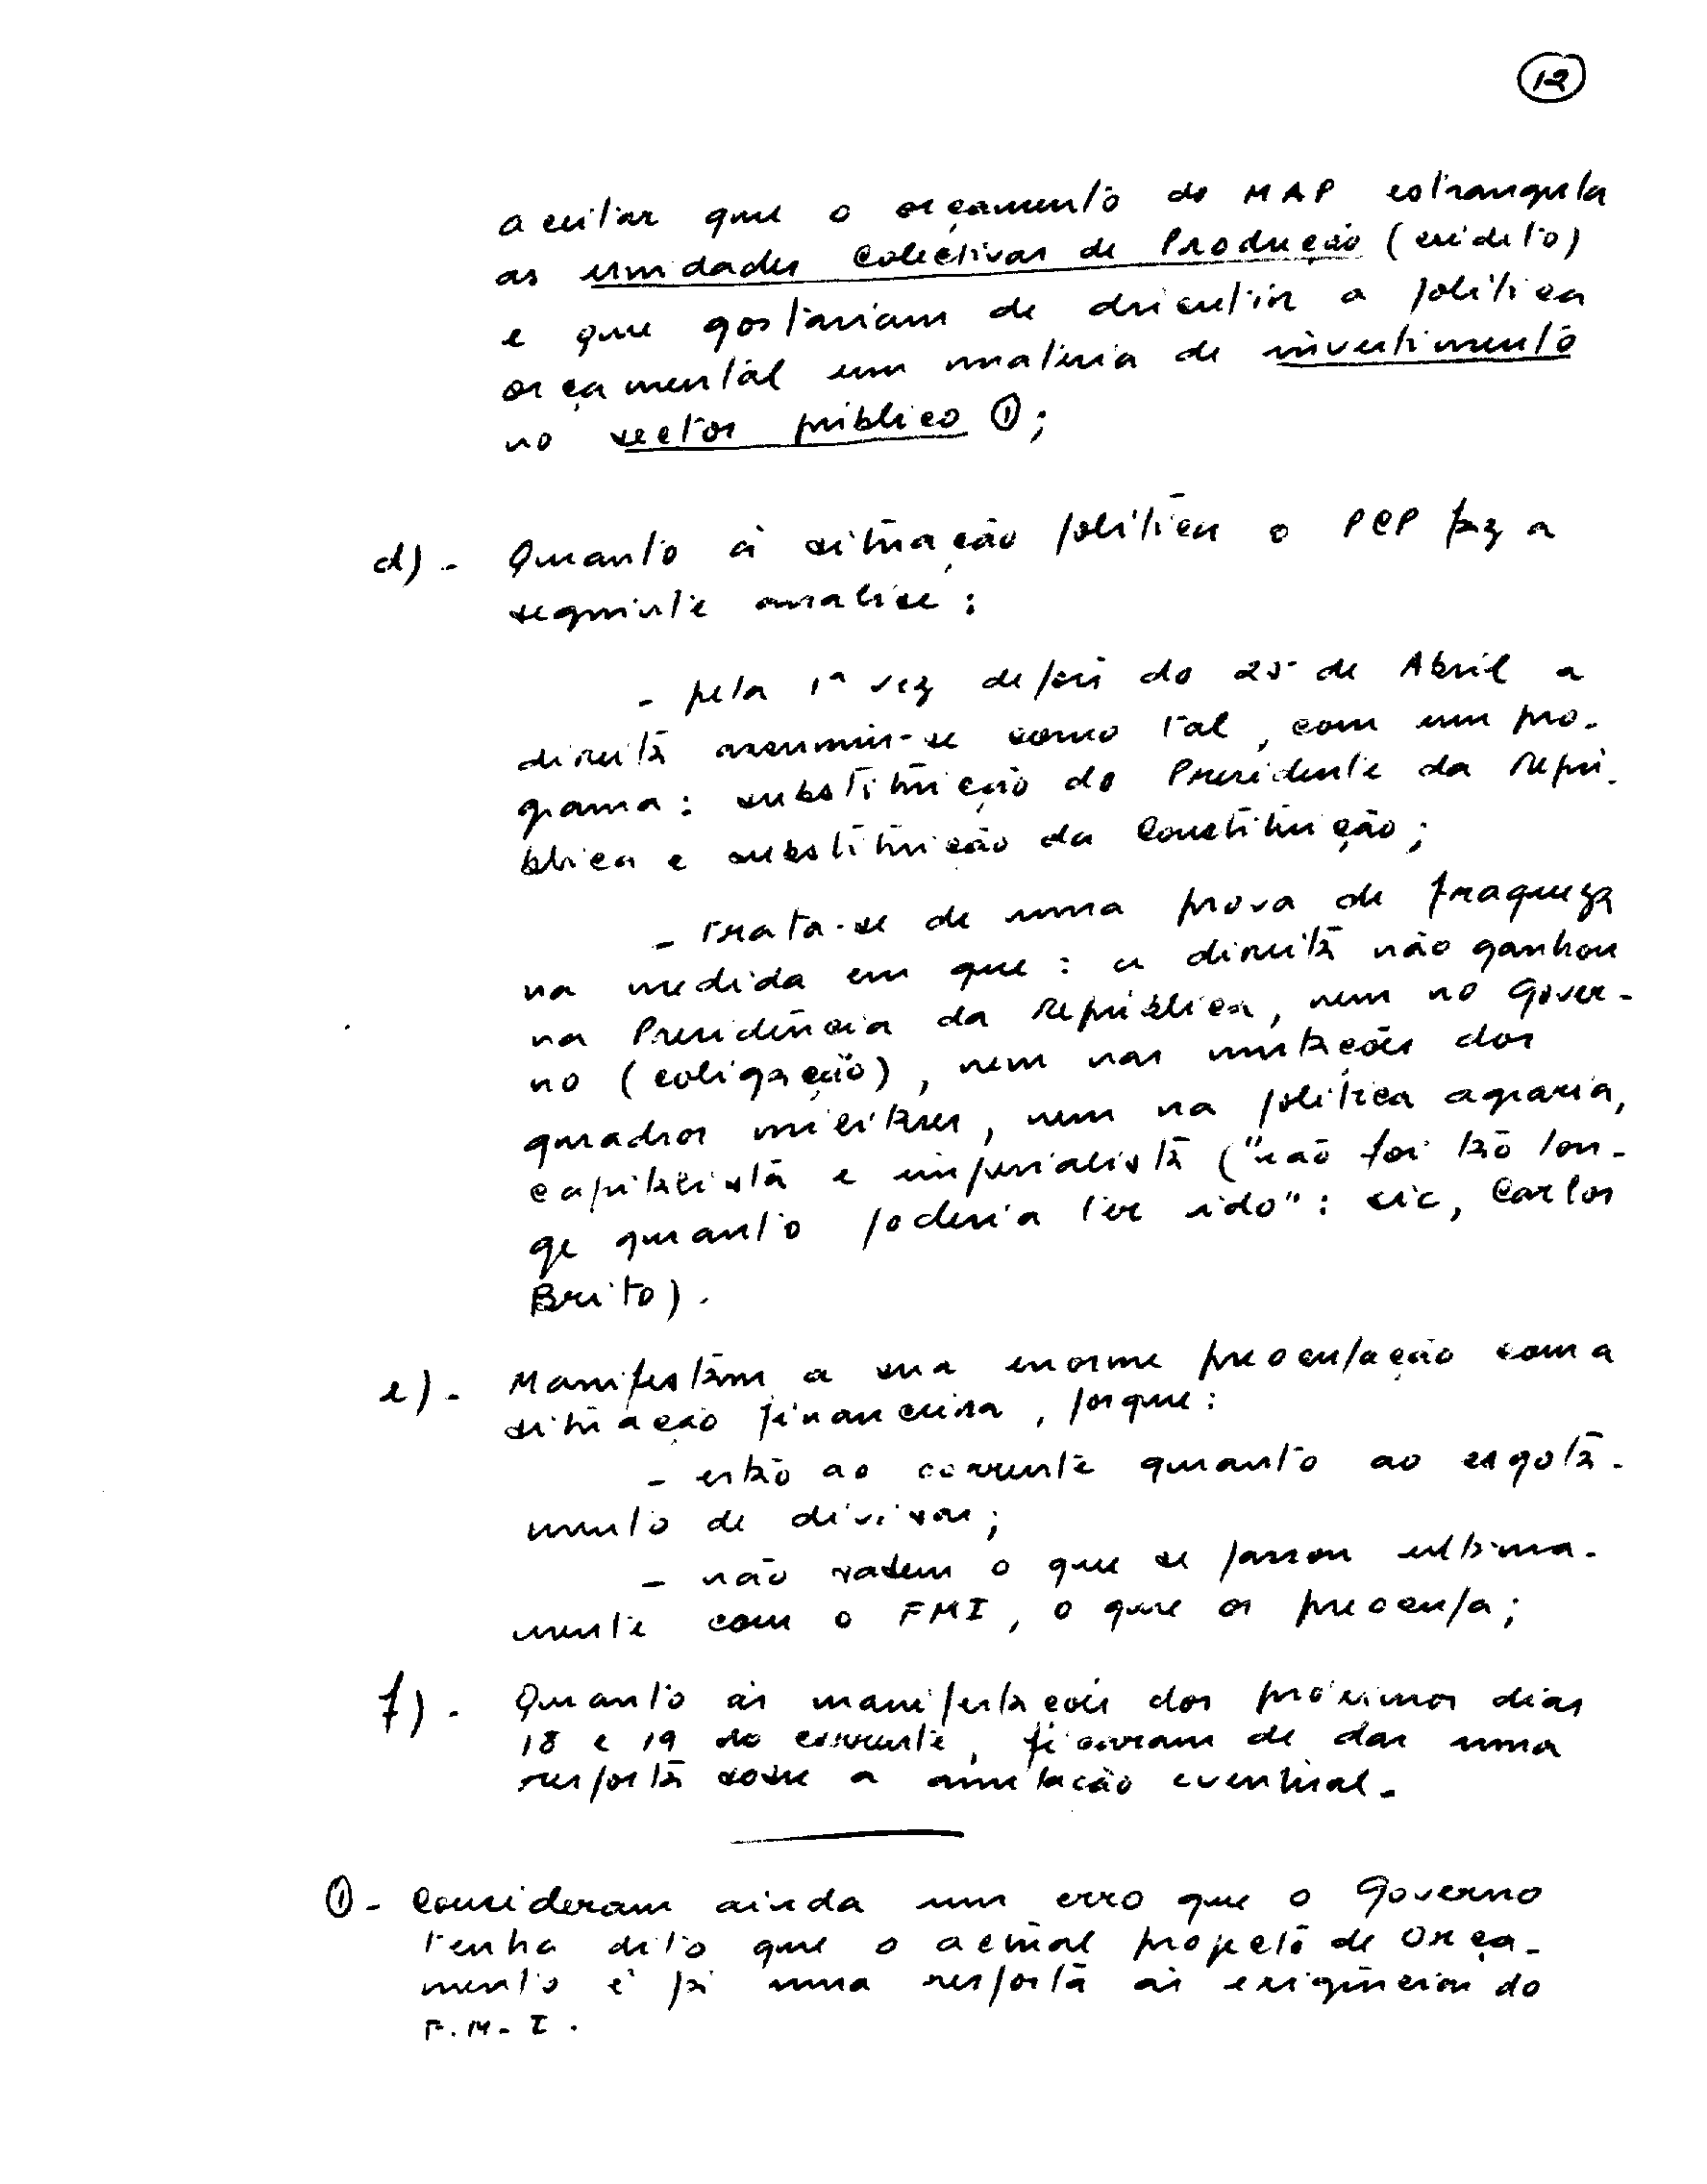 12
aceitar que o orçamento do MAP estrangula
as unidades colectivas de Produção (crédito)
e que gostariam de discutir a política
orçamental em matéria de investimento
no sector público ①;
d) - Quanto à situação política o PCP faz a
seguinte analise:
- pela 1ª vez depois do 25 de Abril a
direita assumiu-se como tal, com um pro-
grama: substituição do Presidente da Repú-
blica e substituição da Constituição;
- trata-se de uma prova de fraqueza
na medida em que: a direita não ganhou
na Presidência da República, nem no Gover-
no (coligação), nem nas mutações dos
quadros militares, nem na política agraria,
capitalista e imperialista ("não foi tão lon-
ge quanto poderia ter ido": sic, Carlos
Brito).
e) - Manifestam a sua enorme preocupação com a
situação financeira, porque:
- estão ao corrente quanto ao esgota-
mento de divisas;
- não sabem o que se passou ultima-
mente com o FMI, o que os preocupa;
f) - Quanto às manifestações dos próximos dias
18 e 19 do corrente, ficaram de dar uma
resposta sobre a anulação eventual.
① - Consideram ainda um erro que o Governo
tenha dito que o actual projecto de Orça-
mento é já uma resposta às exigências do
F.M.I.